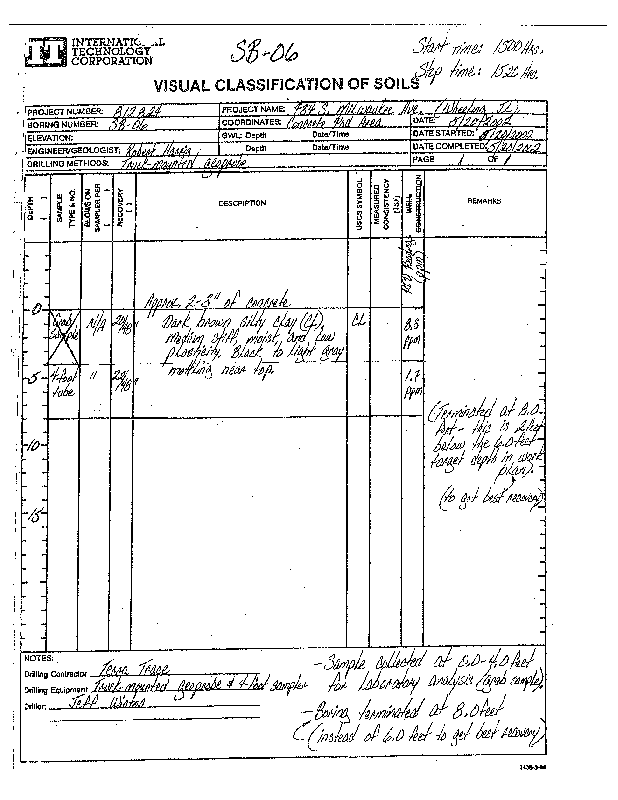 IT INTERNATIONAL
TECHNOLOGY
CORPORATION
SB-06
Start time: 1500 Hrs.
Stop time: 1520 Hrs.
VISUAL CLASSIFICATION OF SOILS
PROJECT NUMBER: 812824
PROJECT NAME: 484 S. Milwaukee Ave. / Wheeling, IL.
BORING NUMBER: SB-06
COORDINATES: Concrete Pad Area
DATE: 5/20/2002
ELEVATION:
GWL: Depth Date/Time
DATE STARTED: 5/20/2002
ENGINEER/GEOLOGIST: Robert
Depth Date/Time
DATE COMPLETED: 5/20/2002
DRILLING METHODS: Truck-mounted geoprobe
PAGE 1 OF 1
DEPTH
SAMPLE TYPE & NO.
BLOWS ON SAMPLER PER
RECOVERY
DESCRIPTION
USCS SYMBOL
MEASURED CONSISTENCY (TSF)
WELL CONSTRUCTION
REMARKS
Readings (ppm)
Approx. 2-3" of concrete
0
Grab Sample
N/A
20/48"
Dark brown silty clay (CL),
medium stiff, moist, and low
plasticity. Black to light gray
mottling near top.
CL
8.5 ppm
5
4-foot tube
"
1.7 ppm
(Terminated at 8.0
feet - this is 2 feet
below the 6.0 feet
target depth in work
plan)
(to get best recovery)
10
15
NOTES:
Drilling Contractor Terra Trace
Drilling Equipment Truck mounted geoprobe & 4-foot sampler
Driller: Jeff
- Sample collected at 0.0-4.0 feet
for laboratory analysis (grab sample)
- Boring terminated at 8.0 feet
(instead of 6.0 feet to get best recovery)